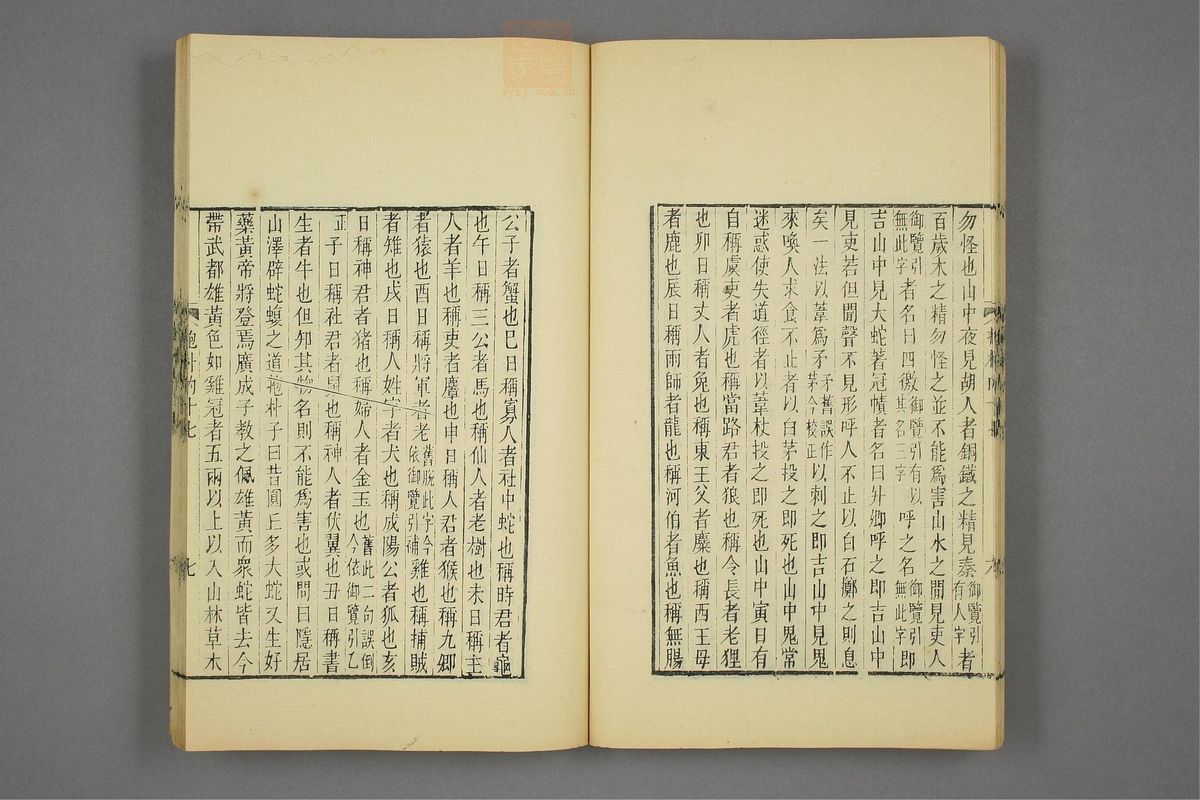 勿怪也山中夜見胡人者銅鐵之精見秦御覽引有人字者
百歲木之精勿怪之並不能為害山水之間見吏人
御覽引無此字者名曰四徼御覽引有以其名三字呼之名御覽引無此字即
吉山中見大蛇著冠幘者名曰升卿呼之即吉山中
見吏若但聞聲不見形呼人不止以白石擲之則息
矣一法以葦為矛矛舊誤作茅今校正以刺之即吉山中見鬼
來喚人求食不止者以白茅投之即死也山中鬼常
迷惑使失道徑者以葦杖投之即死也山中寅日有
自稱虞吏者虎也稱當路君者狼也稱令長者老狸
也卯日稱丈人者兔也稱東王父者麋也稱西王母
者鹿也辰日稱雨師者龍也稱河伯者魚也稱無腸
公子者蟹也巳日稱寡人者社中蛇也稱時君者龜
也午日稱三公者馬也稱仙人者老樹也未日稱主
人者羊也稱吏者麞也申日稱人君者猴也稱九卿
者猿也酉日稱將軍者老舊脫此字今依御覽引補雞也稱捕賊
者雉也戌日稱人姓字者犬也稱成陽公者狐也亥
日稱神君者豬也稱婦人者金玉也舊此二句誤倒今依御覽引乙
正子日稱社君者鼠也稱神人者伏翼也丑日稱書
生者牛也但知其物名則不能為害也或問曰隱居
山澤辟蛇蝮之道抱朴子曰昔圓丘多大蛇又生好
藥黃帝將登焉廣成子教之佩雄黃而眾蛇皆去今
帶武都雄黃色如雞冠者五兩以上以入山林草木
七